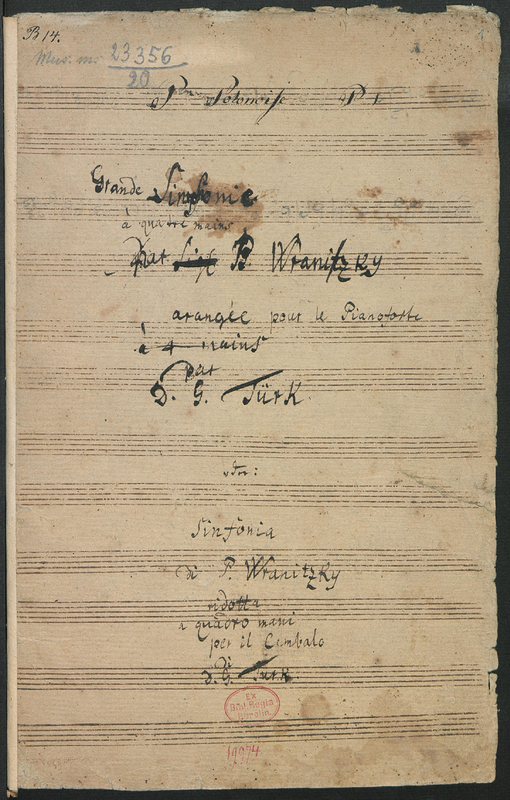 B 14.
Mus. m. 23356
20
Polonoise
Grande Sinfonie
à quatre mains
par P Wranitzky
arangée pour le Pianoforte
à 4 mains
par
D. G. Türk
oder:
Sinfonia
di P. Wranitzky
ridotta
a quadro mani
per il Cembalo
di
D. G. Türk
Ex
Bibl. Regia
Berolin.